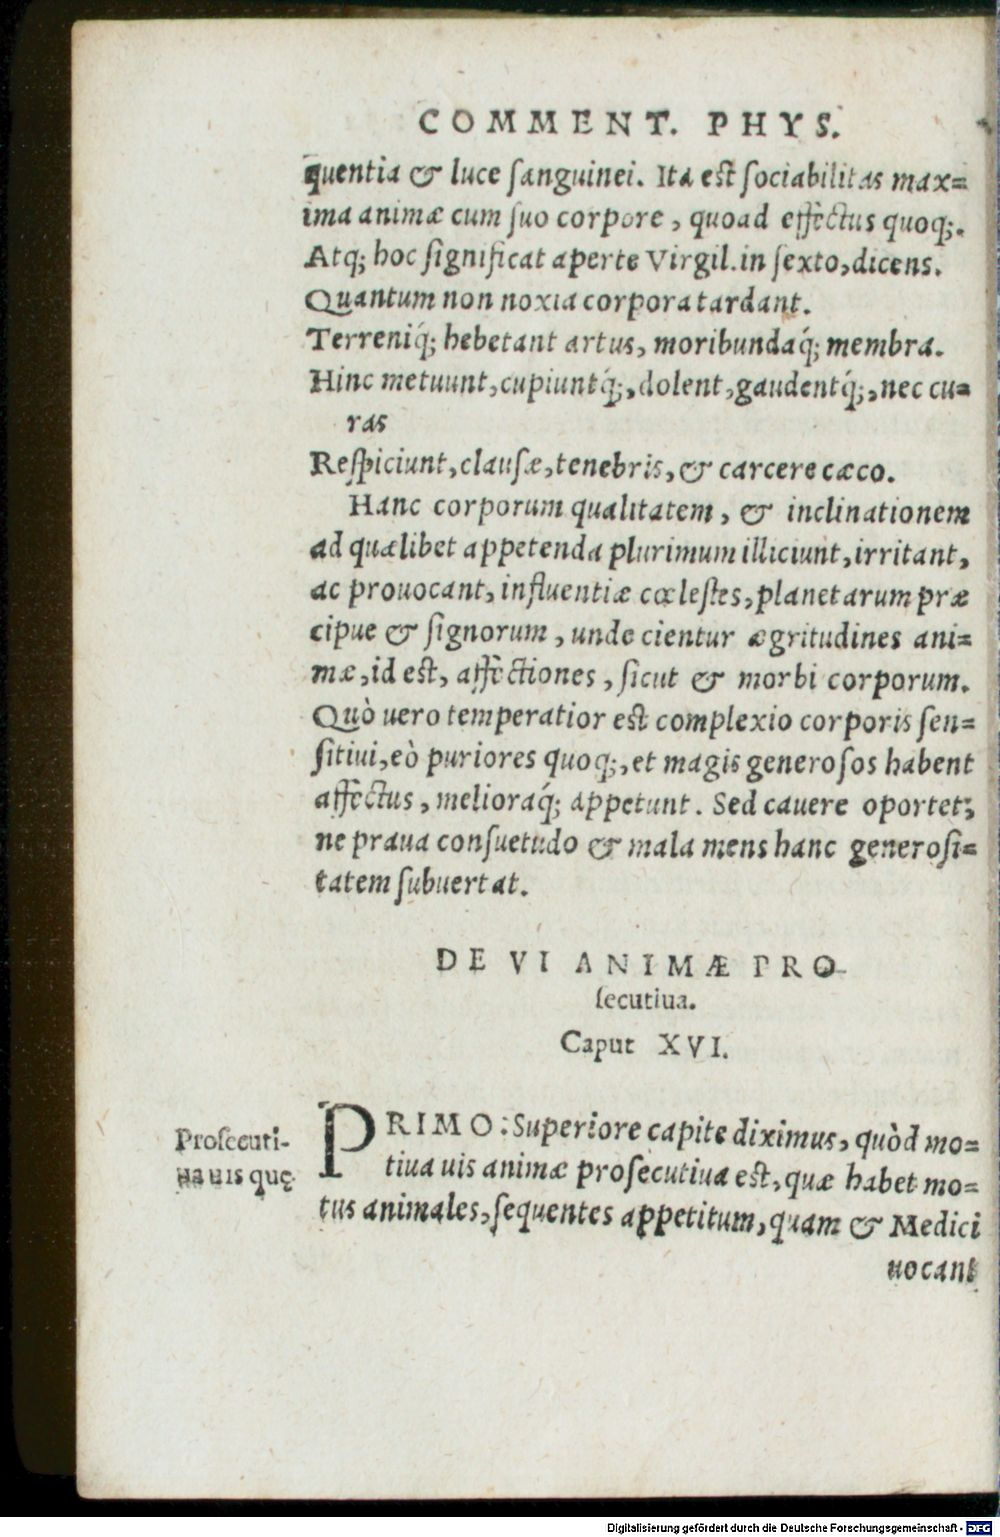 COMMENT. PHYS.
quentia & luce ſanguinei. Ita eſt ſociabilitas max=
ima animæ cum ſuo corpore, quoad effectus quoq;.
Atq; hoc ſignificat aperte Virgil. in ſexto, dicens.
Quantum non noxia corpora tardant.
Terreniq́; hebetant artus, moribundaq́; membra.
Hinc metuunt, cupiuntq́;, dolent, gaudentq́;, nec cu=
ras
Reſpiciunt, clauſæ, tenebris, & carcere cæco.
Hanc corporum qualitatem, & inclinationem
ad quælibet appetenda plurimum illiciunt, irritant,
ac prouocant, influentiæ cœleſtes, planetarum præ
cipue & ſignorum, unde cientur ægritudines ani=
mæ, id eſt, affectiones, ſicut & morbi corporum.
Quò uero temperatior eſt complexio corporis ſen=
ſitiui, eò puriores quoq;, et magis generoſos habent
affectus, melioraq́; appetunt. Sed cauere oportet;
ne praua conſuetudo & mala mens hanc generoſi=
tatem ſubuertat.
DE VI ANIMÆ PRO-
ſecutiua.
Caput XVI.
Proſecuti-
ua uis quę.
PRIMO: Superiore capite diximus, quòd mo=
tiua uis animæ proſecutiua eſt, quæ habet mo=
tus animales, ſequentes appetitum, quam & Medici
uocant
Digitalisierung gefördert durch die Deutsche Forschungsgemeinschaft - DFG